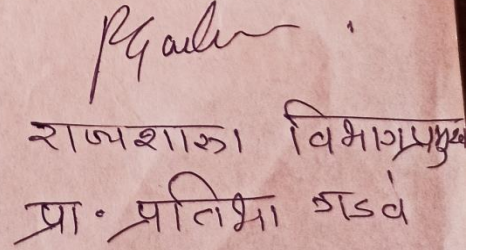 राज्यशास्त्र विभागप्रमुख
प्रा. प्रतिभा गडवे